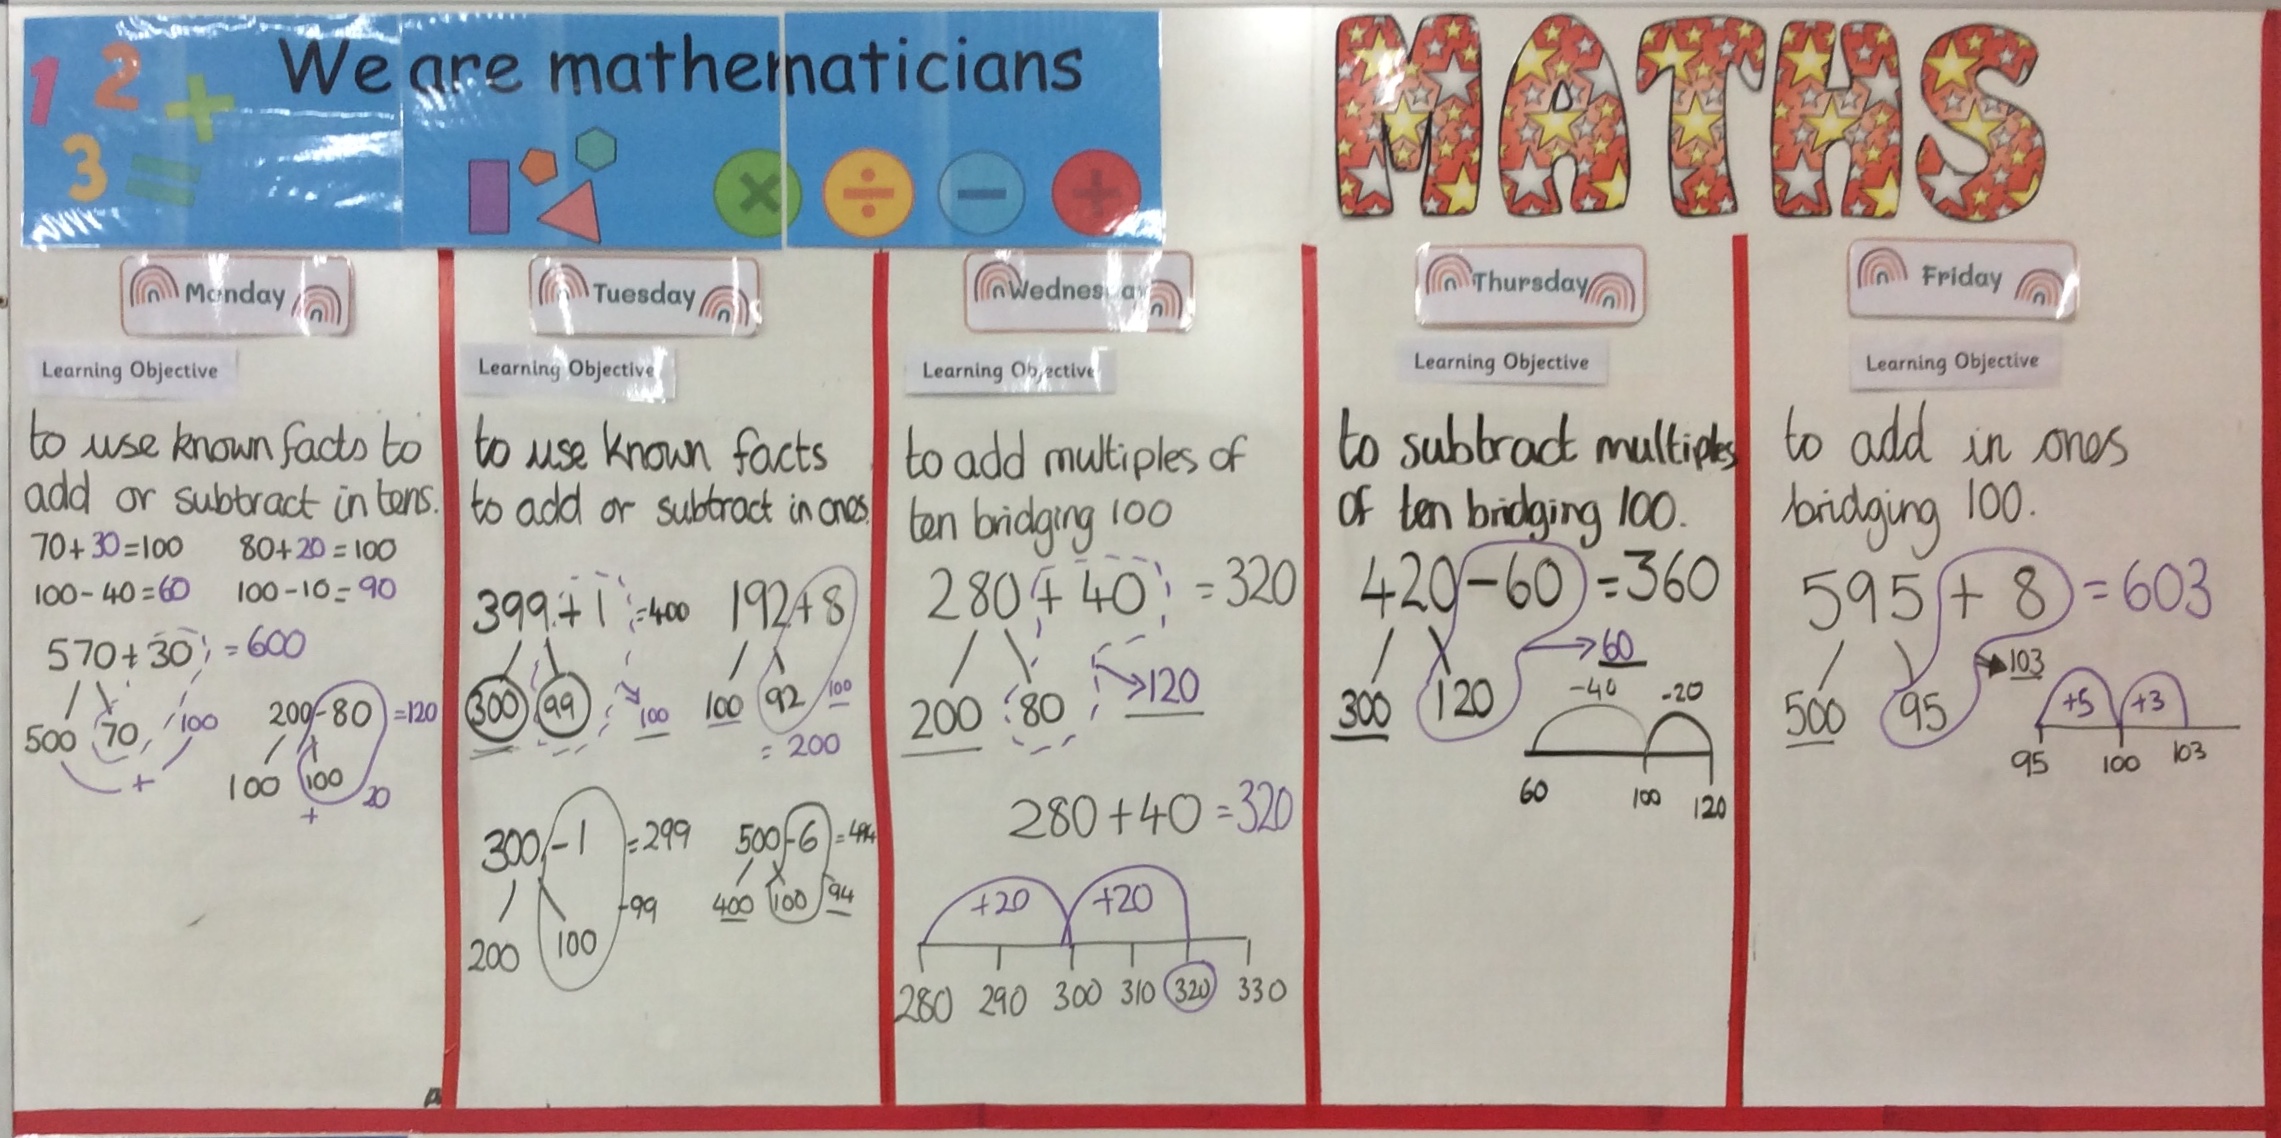 1 2 + 3 =
We are mathematicians
× ÷ − +
MATHS
Monday
Learning Objective
to use known facts to
add or subtract in tens.
70+30=100 80+20=100
100-40=60 100-10=90
570+30=600
500 70 100
+
200-80=120
100 100 20
+
Tuesday
Learning Objective
to use known facts
to add or subtract in ones.
399+1=400
300 99 100
192+8
100 92 100
=200
300-1=299
99
200 100
500-6=494
400 100 94
Wednesday
Learning Objective
to add multiples of
ten bridging 100
280+40=320
200 80 120
280+40=320
+20 +20
280 290 300 310 320 330
Thursday
Learning Objective
to subtract multiples
of ten bridging 100.
420-60=360
60
300 120
-40 -20
60 100 120
Friday
Learning Objective
to add in ones
bridging 100.
595+8=603
103
500 95
+5 +3
95 100 103